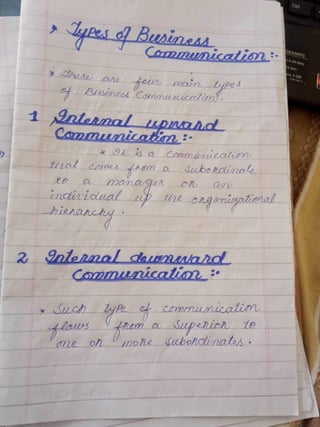 Types of Business
Communication:-
* There are four main types
of Business Communication.
1 Internal upward
Communication:-
* It is a communication
that comes from a subordinate
to a manager or an
individual up the organizational
hierarchy.
2 Internal downward
Communication:-
* Such type of communication
flows from a superior to
one or more subordinates.